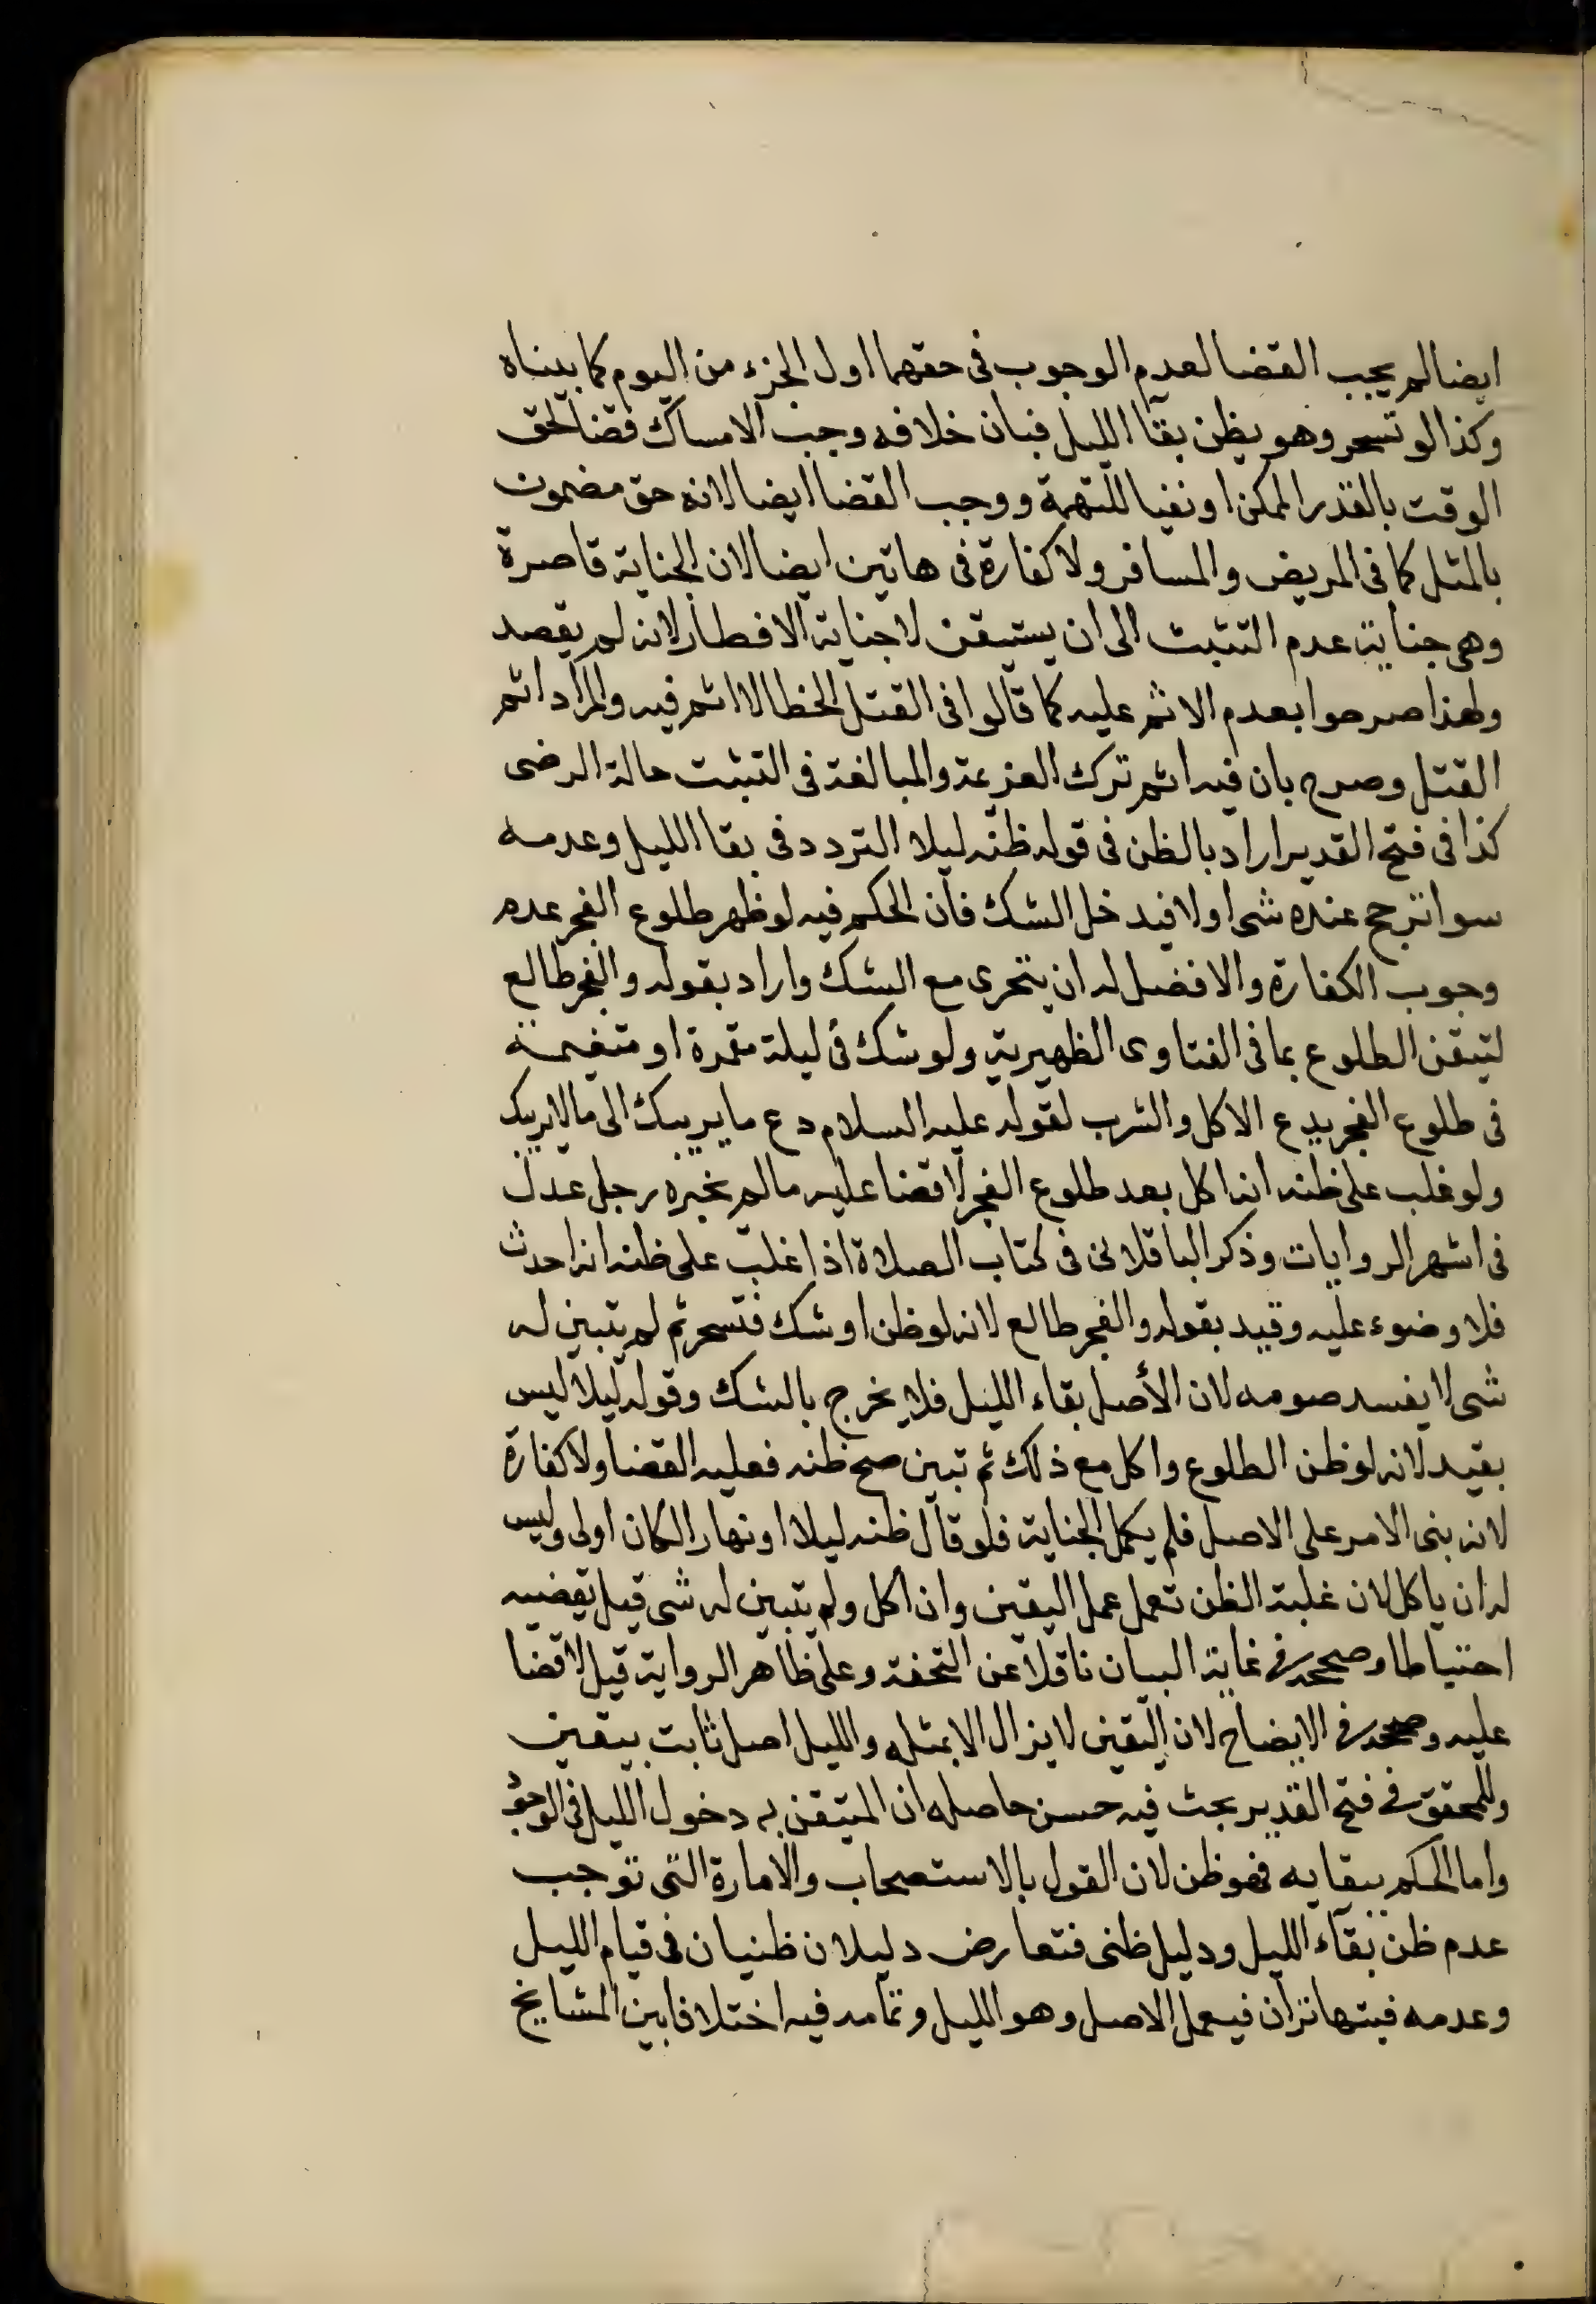 ايضا لم يجب القضا لعدم الوجوب فى حقهما اول الجزء من اليوم كما بيناه
وكذا لو تسحر وهو يظن بقآ الليل فبان خلافه وجب الامساك قضا لحق
الوقت بالقدر الممكن او نفيا للتهمة ووجب القضا ايضا لانه حق مضمون
بالمثل كما فى المريض والمسافر ولا كفارة فى هاتين ايضا لان الجناية قاصرة
وهى جناية عدم التثبت الى ان يستيقن لا جناية الافطار لانه لم يقصد
ولهذا صرحوا بعدم الاثم عليه كما قالوا فى القتل الخطا لا اثم فيه والمراد اثم
القتل وصرح بان فيه اثم ترك العزيمة والمبالغة فى التثبت حالة الرضى
كذا فى فتح القدير اراد بالظن فى قوله ظنه ليلا التردد فى بقا الليل وعدمه
سوا ترجح عنده شى اولا فيدخل الشك فان الحكم فيه لو ظهر طلوع الفجر عدم
وجوب الكفارة والافضل له ان يتحرى مع الشك واراد بقوله والفجر طالع
لتيقن الطلوع بما فى الفتاوى الظهيرية ولو شك فى ليلة مقمرة او متغيمة
فى طلوع الفجر يدع الاكل والشرب لقوله عليه السلام دع ما يريبك الى مالايريبك
ولو غلب على ظنه انه اكل بعد طلوع الفجر لا قضا عليه مالم يخبره رجل عدل
فى اشهر الروايات وذكر الباقلانى فى كتاب الصلاة اذا غلب على ظنه انه احدث
فلا وضوء عليه وقيد بقوله والفجر طالع لانه لو ظن او شك فتسحر ثم لم يتبين له
شى لا يفسد صومه لان الأصل بقاء الليل فلا يخرج بالشك وقوله ليلا ليس
بقيد لانه لو ظن الطلوع واكل مع ذلك ثم تبين صح ظنه فعليه القضا ولا كفارة
لانه بنى الامر على الاصل فلم يكمل الجناية فلو قال ظنه ليلا او نهارا لكان اولى وليس
له ان ياكل لان غلبة الظن تعمل عمل اليقين وان اكل ولم يتبين له شى قيل يقضيه
احتياطا وصححه فى غاية البيان ناقلا عن التحفة وعلى ظاهر الرواية قيل لا قضا
عليه وصححه فى الايضاح لان اليقين لا يزال الا بمثله والليل اصل ثابت بيقين
وللمحقق فى فتح القدير بحث فيه حسن حاصله ان المتيقن به دخول الليل فى الوجود
واما الحكم ببقايه فهو ظن لان القول بالاستصحاب والامارة التى توجب
عدم ظن بقآء الليل ودليل ظنى فتعارض دليلان ظنيان فى قيام الليل
وعدمه فيتهاتران فيعمل الاصل وهو الليل وتمامه فيه اختلافا بين المشايخ